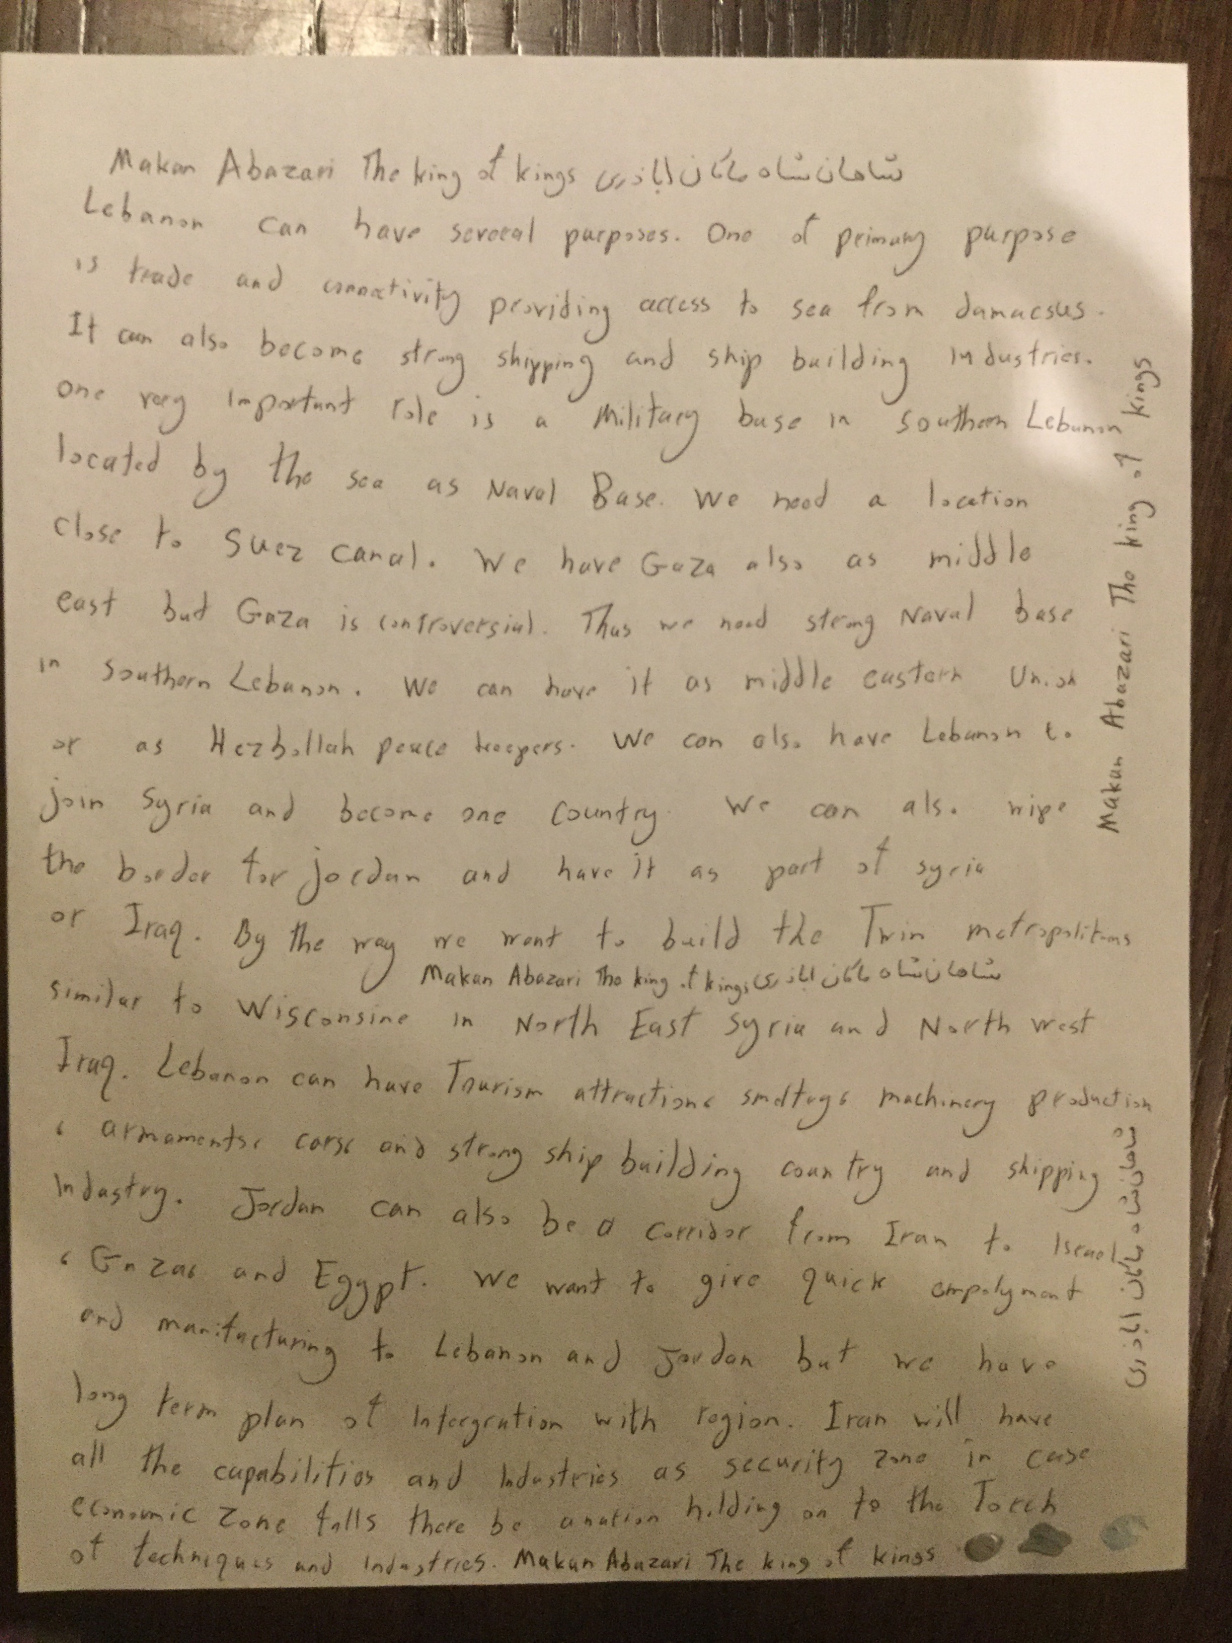 Makan Abazari The king of kings شاهان شاه ماکان اباذری
Lebanon can have several purposes. One of primary purpose
is trade and connectivity providing access to sea from damacsus.
It can also become strong shipping and ship building Industries.
One very Important role is a Military base in southern Lebanon
located by the sea as Naval Base. We need a location
close to Suez canal. We have Gaza also as middle
east but Gaza is controversial. Thus we need strong Naval base
in southern Lebanon. We can have it as middle eastern Union
or as Hezbollah peace keepers. We can also have Lebanon to
join Syria and become one country. We can also wipe
the border for jordan and have it as part of syria
or Iraq. By the way we want to build the Twin metropolitans
Makan Abazari The king of kings شاهان شاه ماکان اباذری
similar to Wisconsine in North East Syria and North west
Iraq. Lebanon can have Tourism attractions machinery production
، armaments، cars، and strong ship building country and shipping
Industry. Jordan can also be a corridor from Iran to Israel
، Gaza، and Egypt. We want to give quick empolyment
and manifacturing to Lebanon and Jordan but we have
long term plan of Intergration with region. Iran will have
all the capabilities and Industries as security zone in case
economic zone falls there be a nation holding on to the Torch
of techniques and Industries. Makan Abazari The king of kings
Makan Abazari The king of kings
شاهان شاه ماکان اباذری